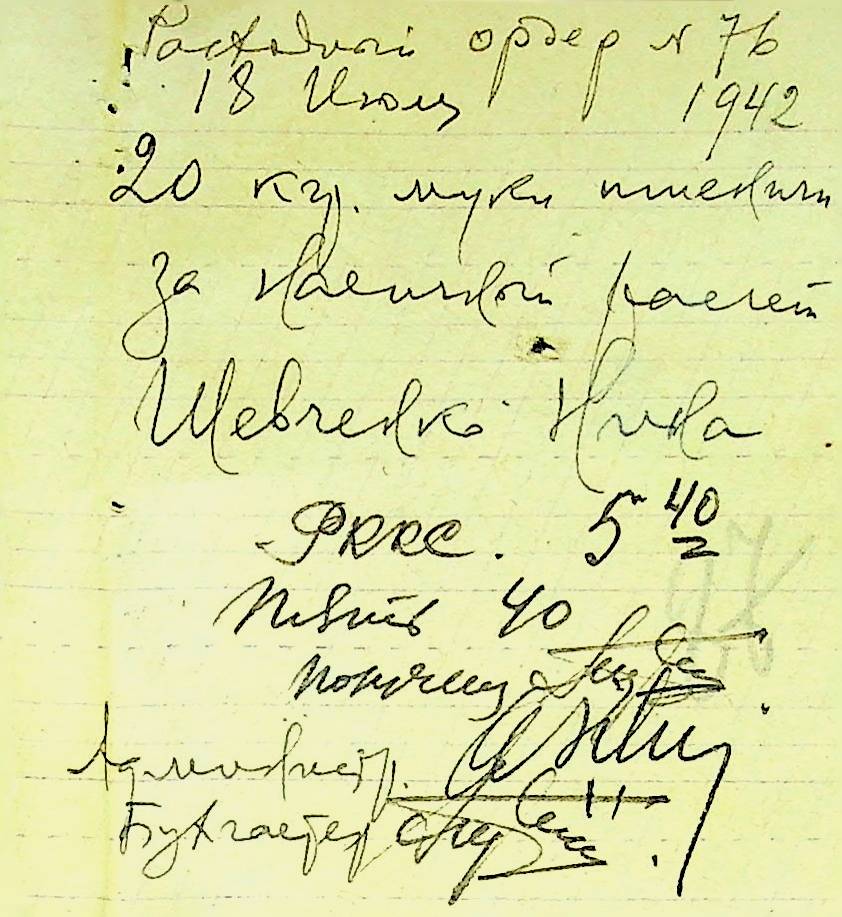 Расходный ордер № 76
18 Июля 1942
20 кгр. муки пшенични
За наличный расчет
Шевченко Нина
РККС. 5 40
40
Получил
Администр.
Бухгалтер